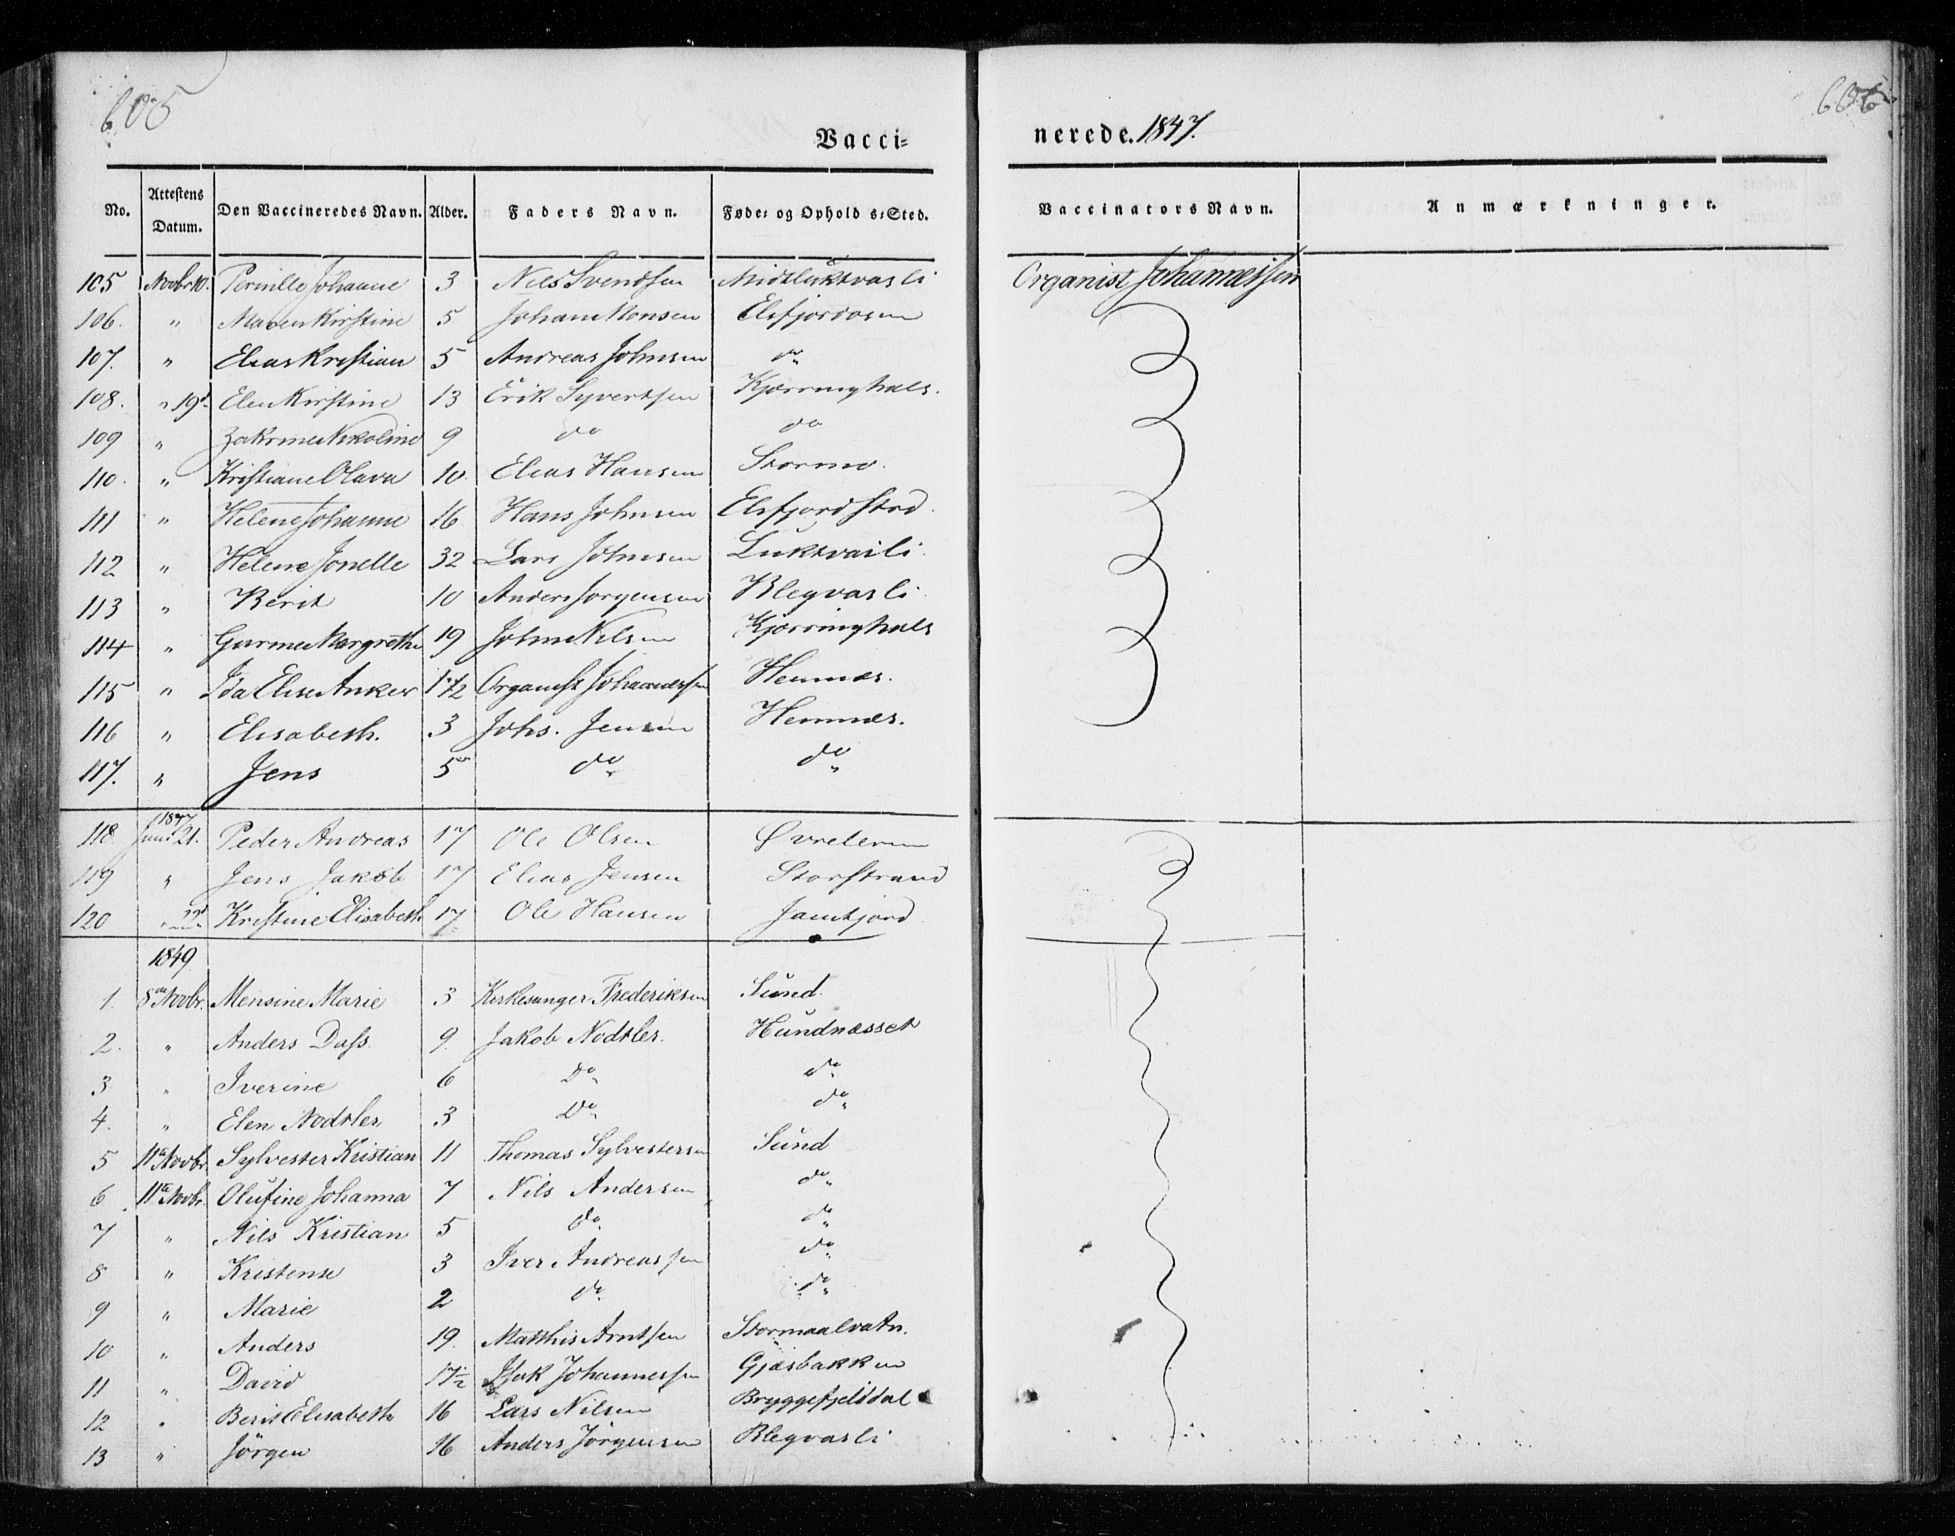 605
606
Vacci-
nerede. 1847.
No. Attestens Datum. Den Vaccineredes Navn. Alder. Faders Navn. Føde- og Opholds-Sted. Vaccinators Navn. Anmærkninger.
105 Novbr 10. Pernille Johanne 3 Nils Svendsen Midtluktvasli Organist Johannessen
106. " Maren Kirstine 5 Johan Monsen Elsfjordosen
107. " Elias Kristian 5 Andreas Johnsen do
108. " 19d. Elen Kirstine 13 Erik Syvertsen Kjærringhals.
109 " Nikoline 9 do do
110. " Kristiane Olava 10. Elias Hansen Stormo.
111 " Helene Johanne 16 Hans Johnsen Elsfjordstrd.
112 " Helene Jonelle 32 Lars Johnsen Luktvasli.
113 " Berit 10 Anders Jörgensen Blegvasli.
114 " Gurine Margrethe 19 John Nilsen Kjærringhals
115 " Ida Elise Anker 1 1/2 Organist Johannessen Hemnæs.
116 " Elisabeth. 3 Johs. Jensen Hemnæs.
117. " Jens 5 do do
118. 1847 Juni 21. Peder Andreas 17 Ole Olsen Øvreleren
119 " Jens Jakob 17 Elias Jensen Storstrand
120 " 22d Kristine Elisabeth 17 Ole Hansen Jamtjord
1849
1. 8de Novbr. Mensine Marie 3 Kirkesanger Frederiksen Sund.
2. " Anders Dass. 9. Jakob Nodtler. Hundnæsset
3 " Iverine 6 Do do
4. " Elen Nodtler 3 Do do
5 11te Novbr. Sylvester Kristian 11 Thomas Sylvestersen Sund
6 11te Novbr. Olufine Johanna 7 Nils Andersen do
7 " Nils Kristian 5 do do
8 " Kristense 3 Iver Andreassen do
9 " Marie 2 do do
10 " Anders 19. Matthis Arntsen Stormaalvatn.
11 " David 17 1/2 Isak Johannessen Gjæsbakken
12 " Berit Elisabeth 16 Lars Nilsen Bryggefjelddal
13 " Jörgen 16 Anders Jörgensen Blegvasli